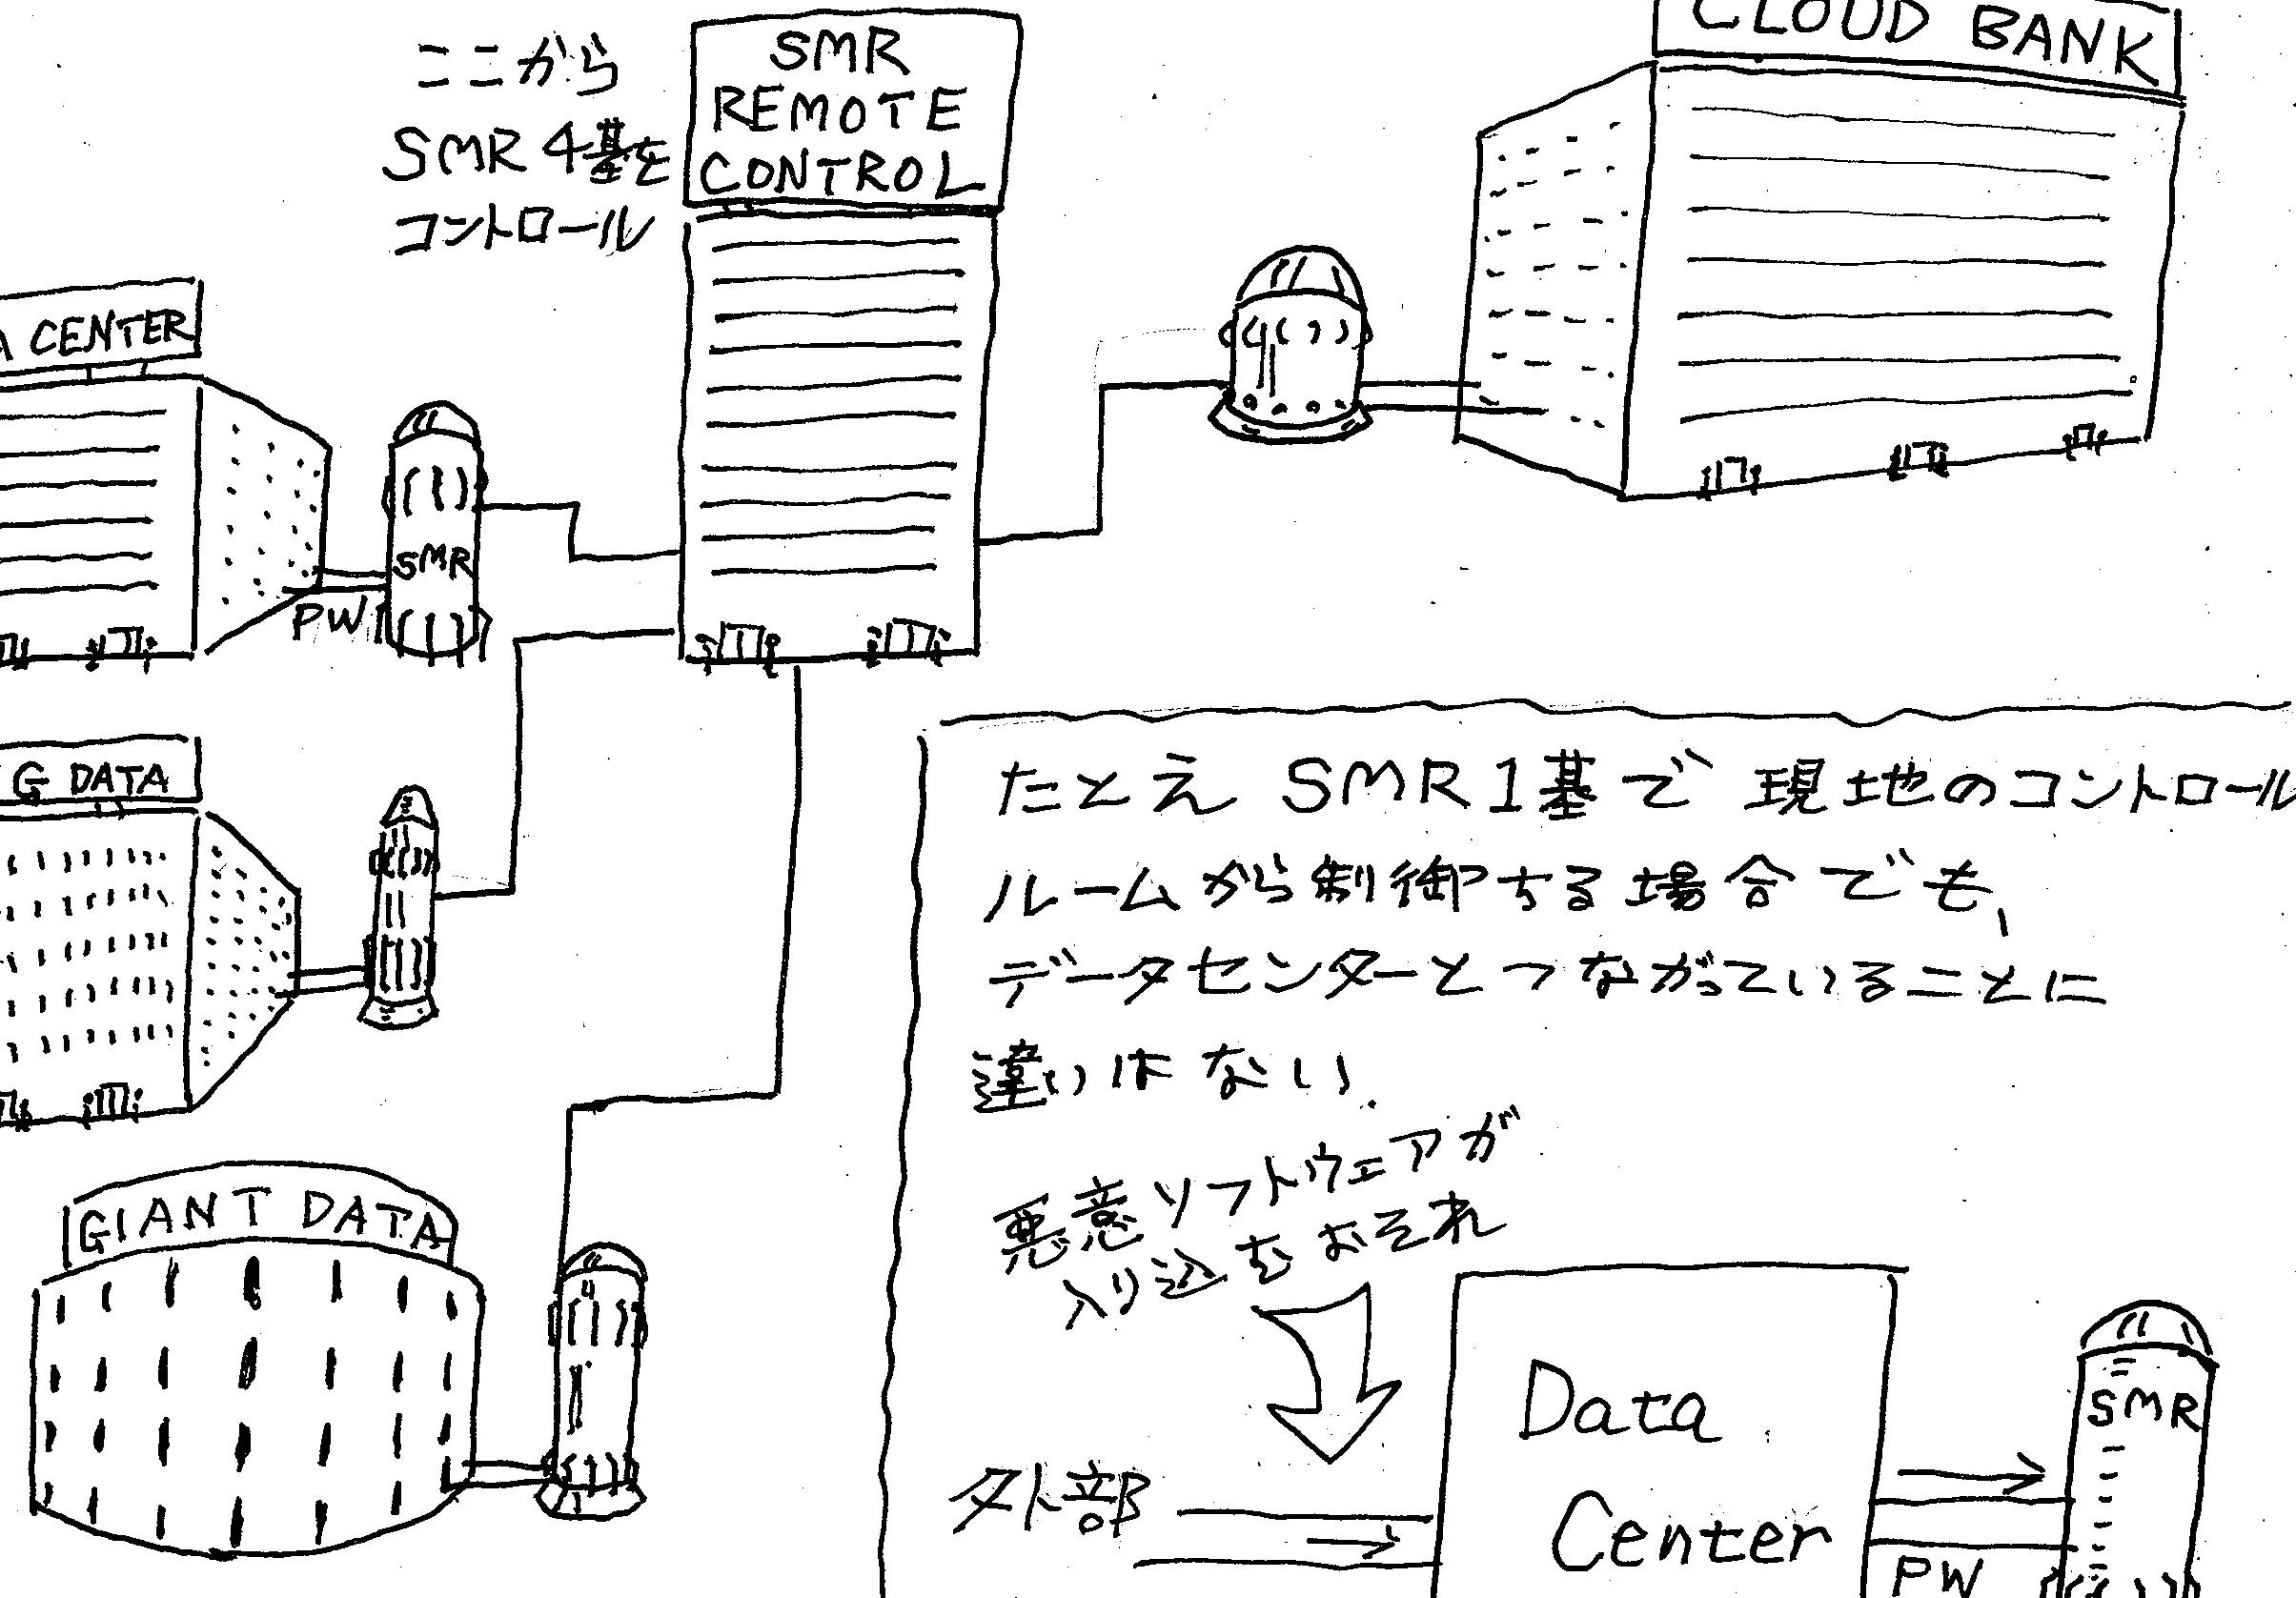 ここから
SMR 4基を
コントロール
SMR
REMOTE
CONTROL
CLOUD BANK
A CENTER
SMR
PW
G DATA
GIANT DATA
たとえ SMR 1基で 現地のコントロール
ルームから制御する場合でも、
データセンターとつながっていることに
違いはない.
悪意ソフトウェアが
入り込むおそれ
外部
Data
Center
SMR
PW